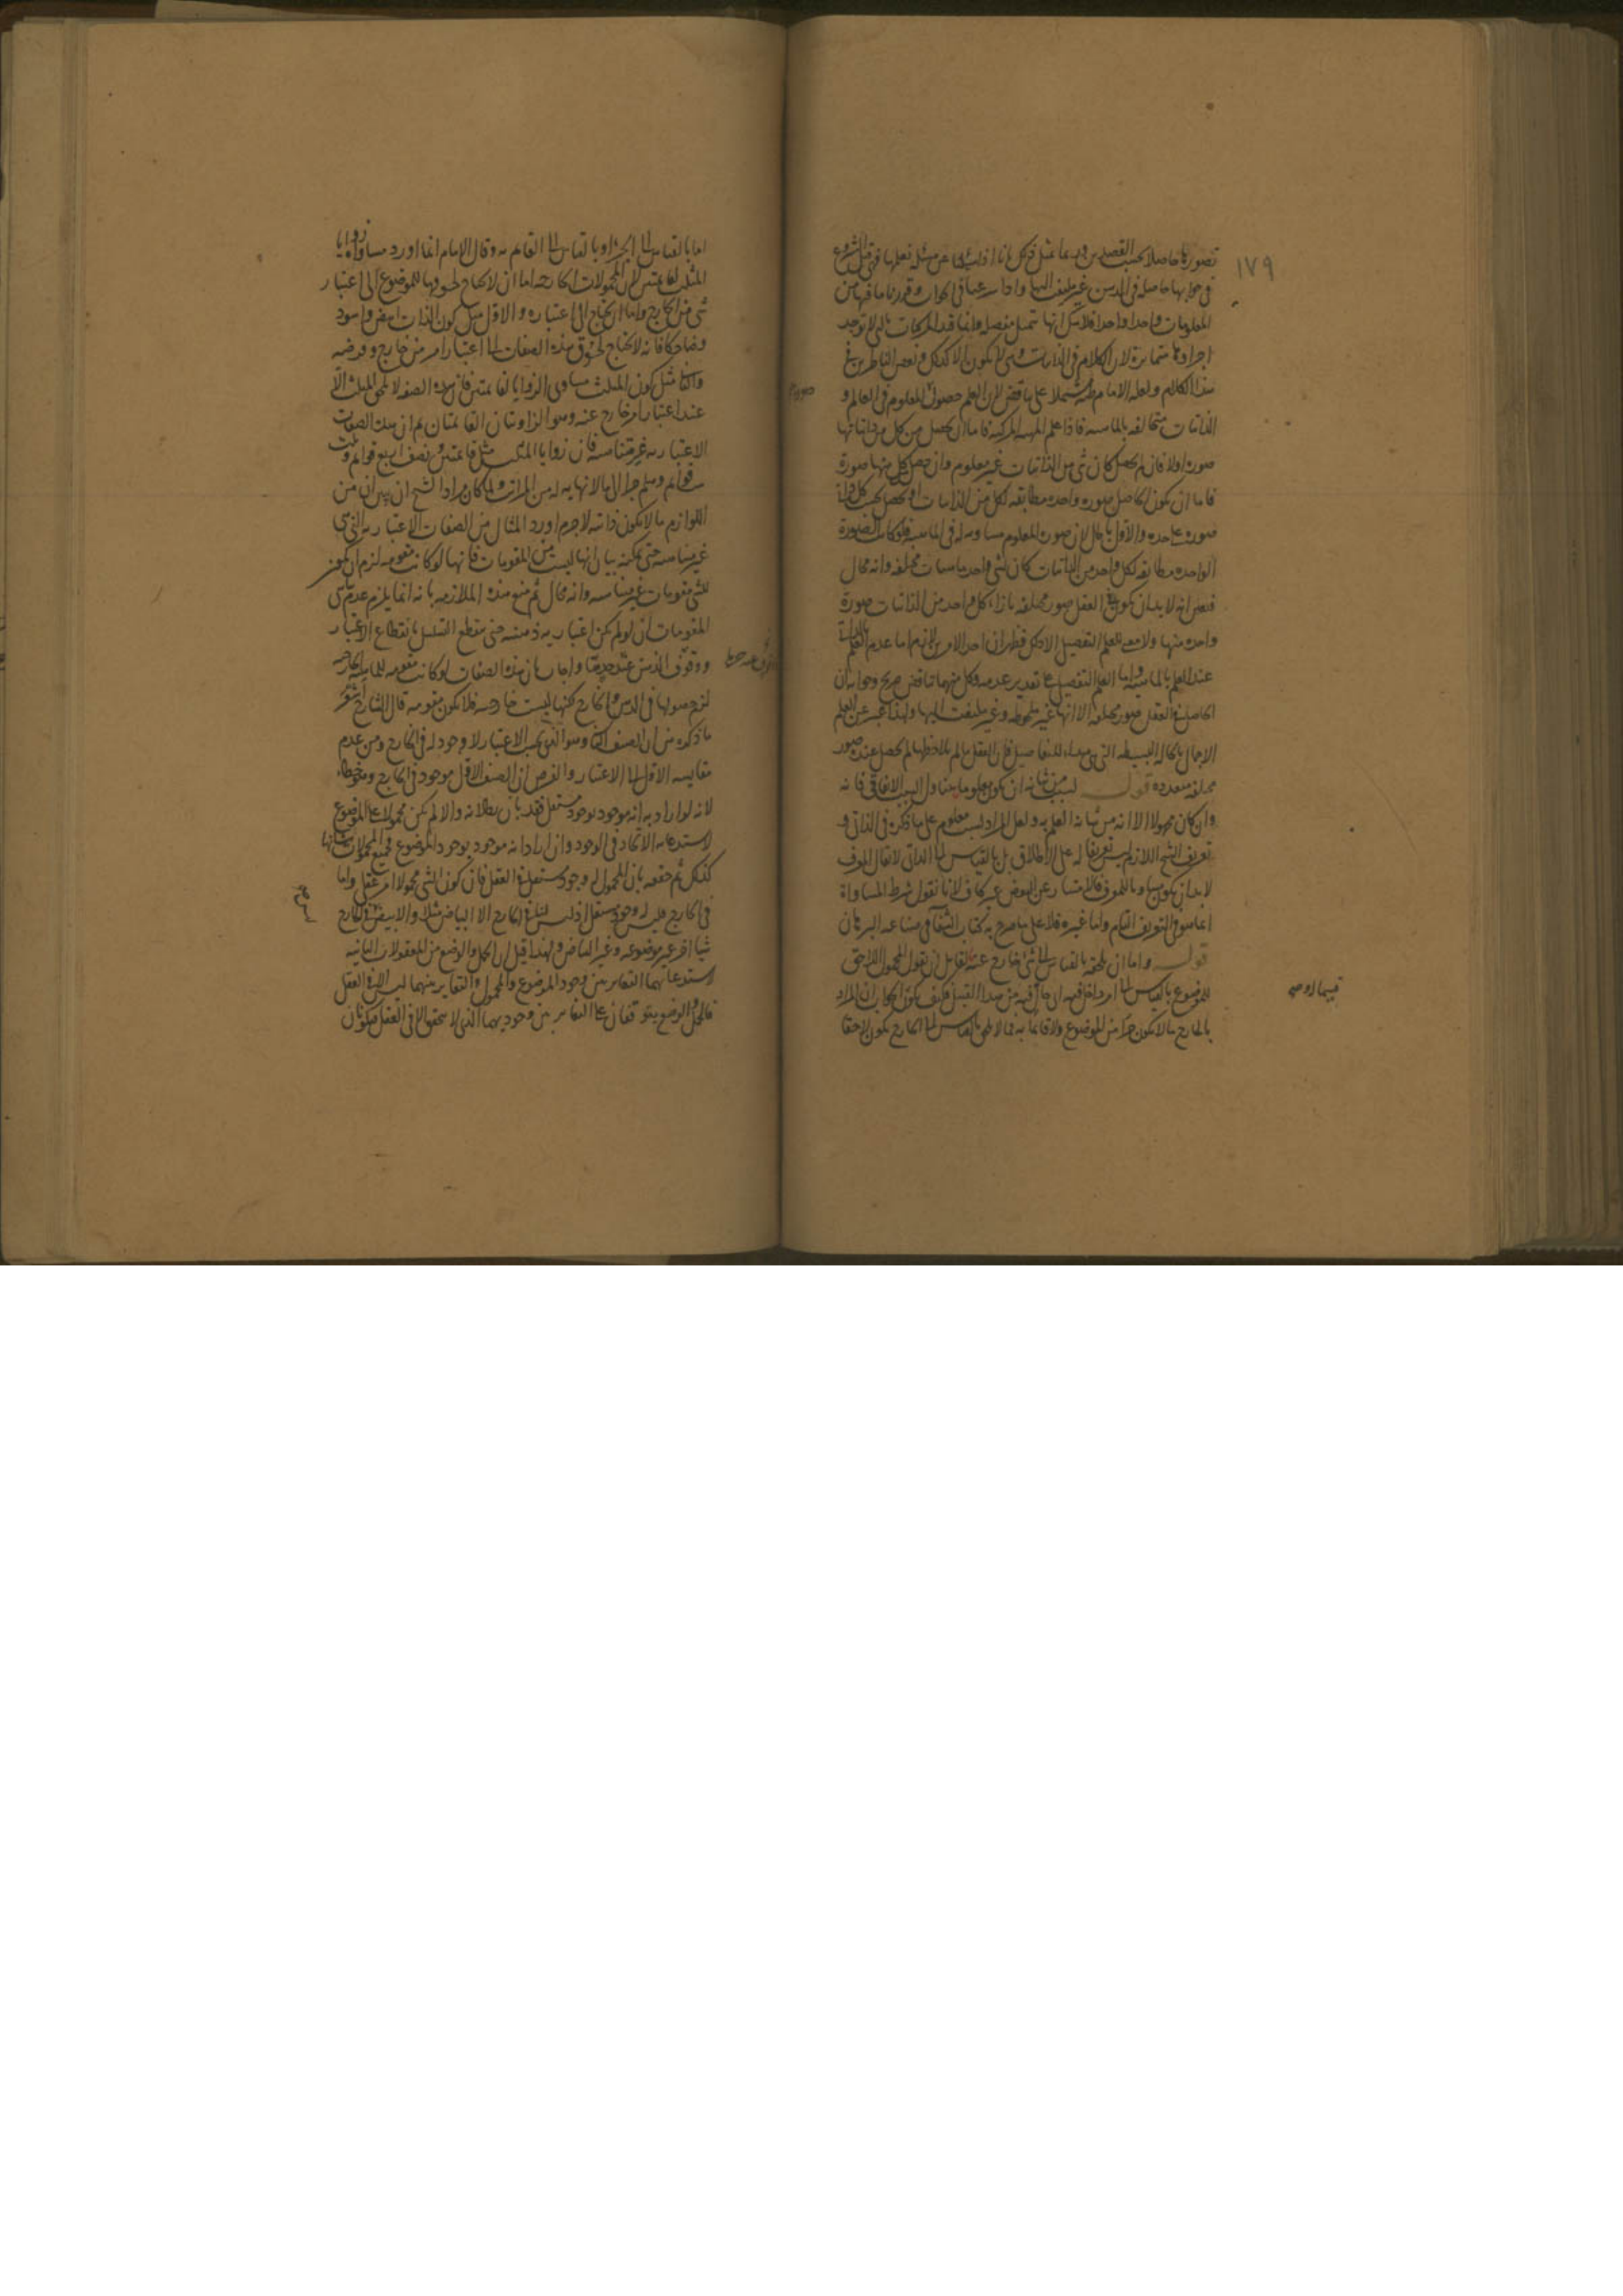 ١٧٩
تصورها حاصلا بحسب القصد
في جوابها حاصلة في الذهن غير ملتفت اليها واذا
المعلومات واحدا واحدا فلا شك انها
اجزاؤها متمايزة لان الكلام في الذاتيات وهي لا يكون الا كذلك وبعض الناظرين في
هذا الكلام ولعله الامام ظنه مشتملا على تناقض لان العلم حصول المعلوم في العالم و
الذاتيات متخالفة بالماهية فاذا علم المهية المركبة فاما ان يحصل من كل من ذاتياتها
صورة اولا فان لم يحصل كان شي من الذاتيات غير معلوم وان حصل كل منها صورة
فاما ان يكون الحاصل صورة واحدة مطابقة لكل من الذاتيات او يحصل بحسب كل واحد
صورة على حده والاول باطل لان صورة المعلوم مساوية له في الماهية فلو كانت الصورة
الواحدة مطابقة لكل واحد من الذاتيات كان لشي واحد ماهيات مختلفة وانه محال
فتعين انه لا بد ان يكون في العقل صور مختلفة بازاء كل واحد من الذاتيات صورة
واحدة منها ولا معنى للعلم التفصيلي الا ذلك فظهر ان احد الامرين لازم اما عدم العلم
عند العلم بالماهية واما العلم التفصيلي على تقدير عدمه وكل منهما تناقض صريح وجوابه ان
الحاصل في العقل صور مختلفة الا انها غير ملحوظة وغير ملتفت اليها ولهذا عبر عن العلم
الاجمالي بالحالة البسيطة التي هي مبدء للتفاصيل فان العقل ما لم يلاحظها لم يحصل عنده صور
مختلفة متعددة قوله ليس من شانه ان يكون معلوما يتناول السبب الاتفاقي فانه
وان كان مجهولا الا انه من شانه العلم به ولعل المراد ليس بمعلوم على ما ذكره في الذاتي و
تعريف الشيخ اللازم ليس تعريفا له على الاطلاق بل بالقياس الى الذاتي لا يقال المعرف
لا بد ان يكون مساويا للمعرف فالامتياز عن البعض غير كاف لانا نقول شرط المساواة
انما هو في التعريف التام واما غيره فلا على ما صرح به كتاب الشفا في صناعة البرهان
قوله واما ان يلحقه بالقياس الى شي خارج عنه لقائل ان يقول المحمول اللاحق
للموضوع بالقياس الى امر داخل فيه او حال فيه من هذا القبيل فكيف يكون الحاق ان المراد
بالخارج ما لا يكون جزأ من الموضوع ولا قائما به فما لا يلحق بالقياس الى الخارج يكون لاحقا
اما بالقياس الى الجزء او بالقياس الى القائم به وقال الامام انما اورد مساواة زوايا
المثلث لقائمتين لان المحمولات الخارجة اما ان لا يحتاج لحوقها للموضوع الى اعتبار
شي من الخارج واما ان يحتاج الى اعتباره والاول مثل كون الذات ابيض واسود
وضاحكا فانه لا يحتاج لحوق هذه الصفات الى اعتبار امر من خارج وفرضه
والثاني مثل كون المثلث مساوي الزوايا لقائمتين فان هذه الصفة لا تلحق المثلث الا
عند اعتبار امر خارج عنه وهو الزاويتان القائمتان ثم ان هذه الصفات
الاعتبارية غير متناهية فان زوايا المثلث مثل قائمتين ونصف اربع قوائم وثلث
ست قوائم وهلم جرا الى ما لا نهاية له من المراتب ولما كان مراد الشيخ ان يبين ان من
اللوازم ما لا يكون ذاتيه لاجرم اورد المثال من الصفات الاعتبارية التي هي
غير متناهية حتى يمكنه بيان انها ليست من المقومات فانها لو كانت مقومة لزم ان يكون
للشي مقومات غير متناهية وانه محال ثم منع هذه الملازمة بانه انما يلزم عدم تناهي
المقومات ان لو لم يكن اعتبارية ذهنية حتى ينقطع التسلسل بانقطاع الاعتبار
ووقوف الذهن عند حد ما واجاب بان هذه الصفات لو كانت مقومة للماهية الخارجية
لزم حصولها في الذهن والخارج لكنها ليست خارجية فلا يكون مقومة قال الشارح
ما ذكره من ان الصنف الثاني وهو الذي بحسب الاعتبار لا وجود له في الخارج ومن عدم
مقايسة الاول الى الاعتبار والفرض ان الصنف الاول موجود في الخارج وهو خطاء
لانه لو اراد به انه موجود بوجود مستقل فقد بان بطلانه والا لم يكن محمولا على الموضوع
لاستدعائه الاتحاد في الوجود وان اراد انه موجود بوجود الموضوع فجميع المحمولات شانها
كذلك ثم حققه بان المحمول له وجود مستقل في العقل فان كون الشي محمولا امر عقلي واما
في الخارج فليس له وجود مستقل اذ ليس لنا في الخارج الا البياض مثلا والابيض في الخارج
شيأ اخر غير موضوعه وغير البياض ولهذا قيل ان الحمل والوضع من المعقولات الثانية
لاستدعائهما التغاير بين وجود الموضوع والمحمول والتغاير بينهما ليس الا في العقل
فالحمل والوضع يتوقفان على التغاير بين وجوديهما الذي لا يتحقق الا في العقل فيكونان